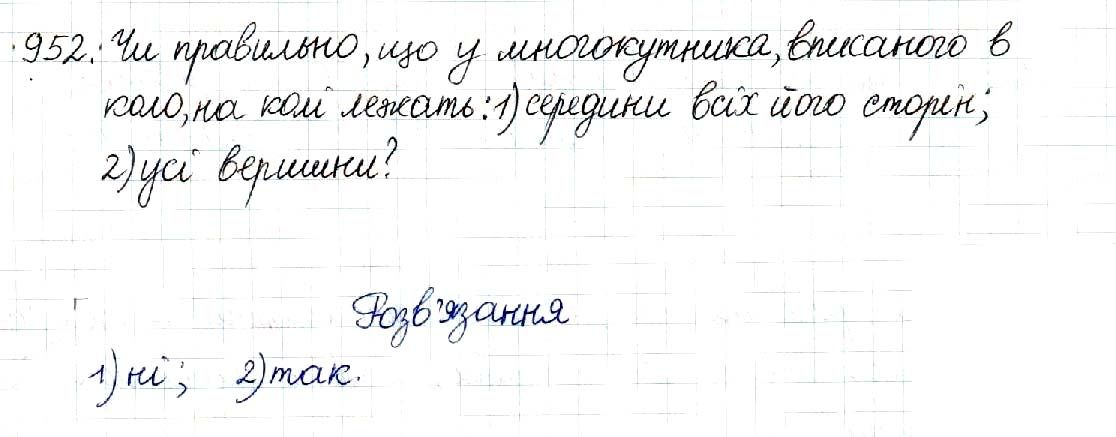 952. Чи правильно, що у многокутника, вписаного в
коло, на колі лежать: 1) середини всіх його сторін;
2) усі вершини?
Розв'язання
1) ні; 2) так.